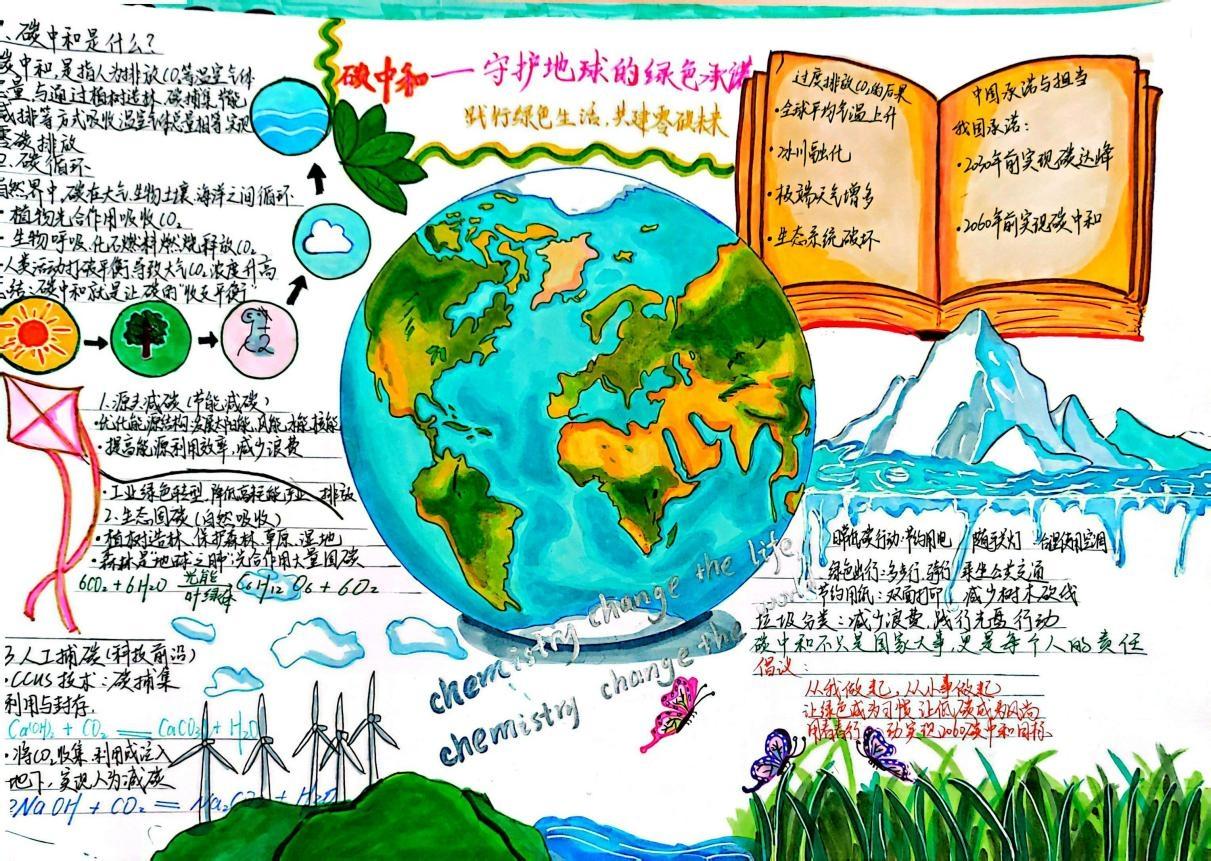 碳中和—守护地球的绿色承诺
践行绿色生活,共建零碳未来
碳中和是什么?
碳中和,是指人为排放CO₂等温室气体
总量,与通过植树造林、碳捕集节能
减排等方式吸收温室气体总量相等实现
零碳排放
碳循环
自然界中,碳在大气、生物、土壤、海洋之间循环
·植物光合作用吸收CO₂
·生物呼吸、化石燃料燃烧释放CO₂
·人类活动打破平衡,导致大气CO₂浓度升高
总结:碳中和就是让碳的“收支平衡”
1.源头减碳(节能减碳)
·优化能源结构:发展太阳能、风能、核能
·提高能源利用效率,减少浪费
·工业绿色转型,降低高耗能 排放
2.生态固碳(自然吸收)
·植树造林、保护森林、草原、湿地
·森林是地球之肺:光合作用大量固碳
6CO₂+6H₂O 光能 叶绿体 C₆H₁₂O₆+6O₂
3.人工捕碳(科技前沿)
·CCUS技术:碳捕集
利用与封存.
Ca(OH)₂ + CO₂ = CaCO₃ + H₂O
·将CO₂收集、利用或注入
地下,实现人为减碳
2NaOH + CO₂ = Na₂CO₃ + H₂O
chemistry change the life
chemistry change the world
过度排放CO₂的后果
·全球平均气温上升
·冰川融化
·极端天气增多
·生态系统破环
中国承诺与担当
我国承诺:
·2030年前实现碳达峰
·2060年前实现碳中和
降低碳行动:节约用电 随手关灯 合理使用空调
绿色出行:多步行、骑行 乘坐公共交通
节约用纸:双面打印 减少树木砍伐
垃圾分类:减少浪费,践行光盘行动
碳中和不只是国家大事,更是每个人的责任
倡议:
从我做起,从小事做起
让绿色成为习惯,让低碳成为风尚
行动实现2060碳中和目标.